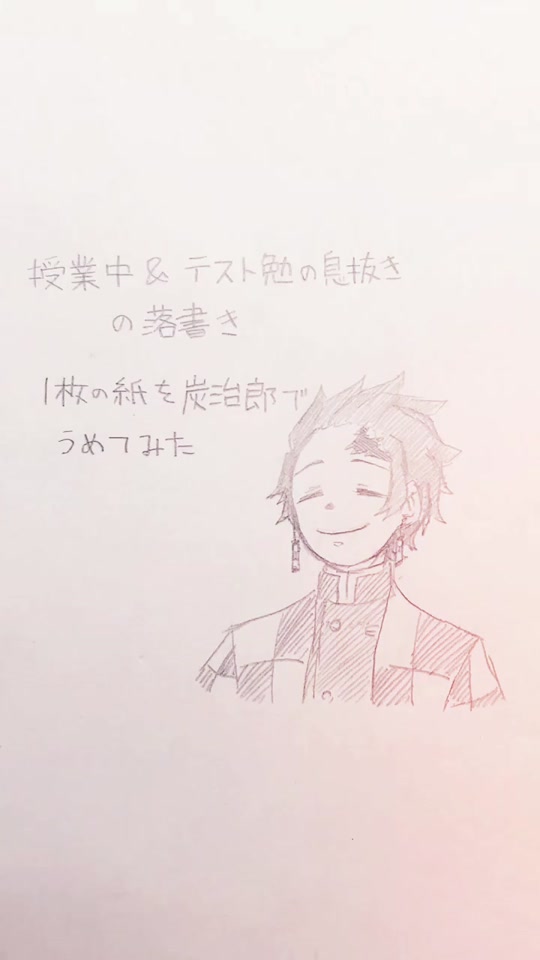 授業中 & テスト勉の息抜き
の落書き
1枚の紙を炭治郎で
うめてみた